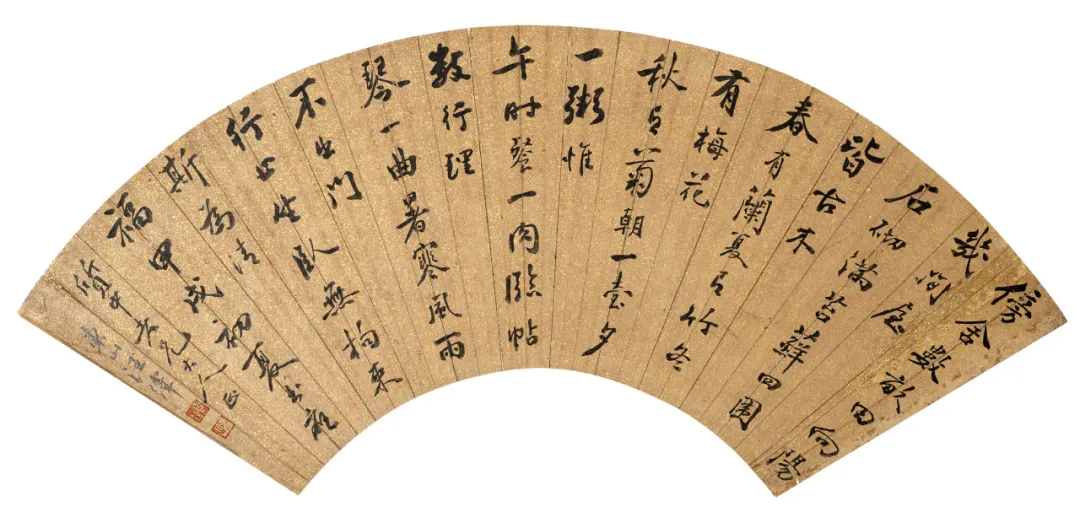 傍舍數畝田向陽
幾间屋
石砌滿苔蘚四圍
皆古木
春有蘭夏有竹冬
有梅花
秋有菊朝一壺夕
一粥惟
午时餐一肉臨帖
数行理
琴一曲暑寒風雨
不出門
行止坐臥無拘束
斯為清
福甲戌初夏書應
老兄大人正